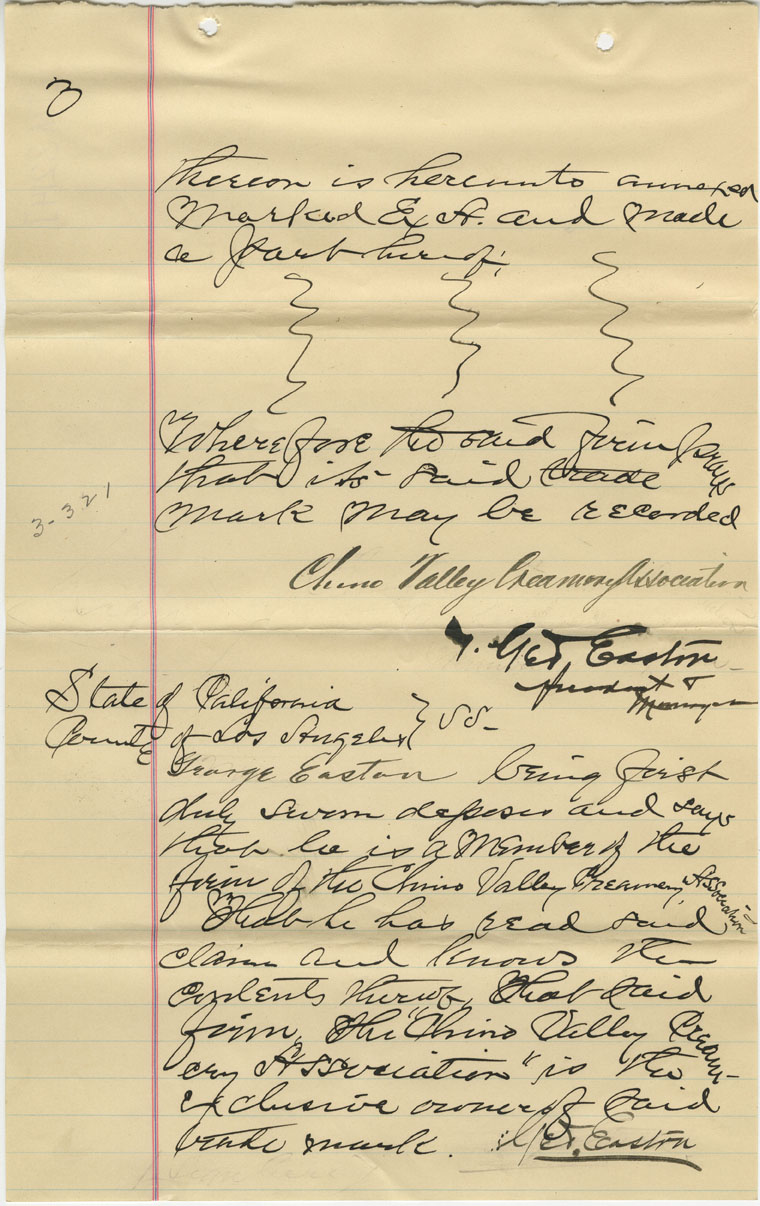 3
thereon is hereunto annexed
Marked Ex A. and made
a part hereof;
Wherefore the said firm prays
that its said trade
mark may be recorded
3-321
Chino Valley Creamery Association
Geo. Easton
President &
Manager
State of California
County of Los Angeles } SS-
George Easton being first
duly sworn deposes and says
that he is a Member of the
firm of the Chino Valley Creamery Association
That he has read said
claim and knows the
contents thereof, That said
firm, The "Chino Valley Cream-
ery Association" is the
exclusive owner of said
trade mark. Geo. Easton